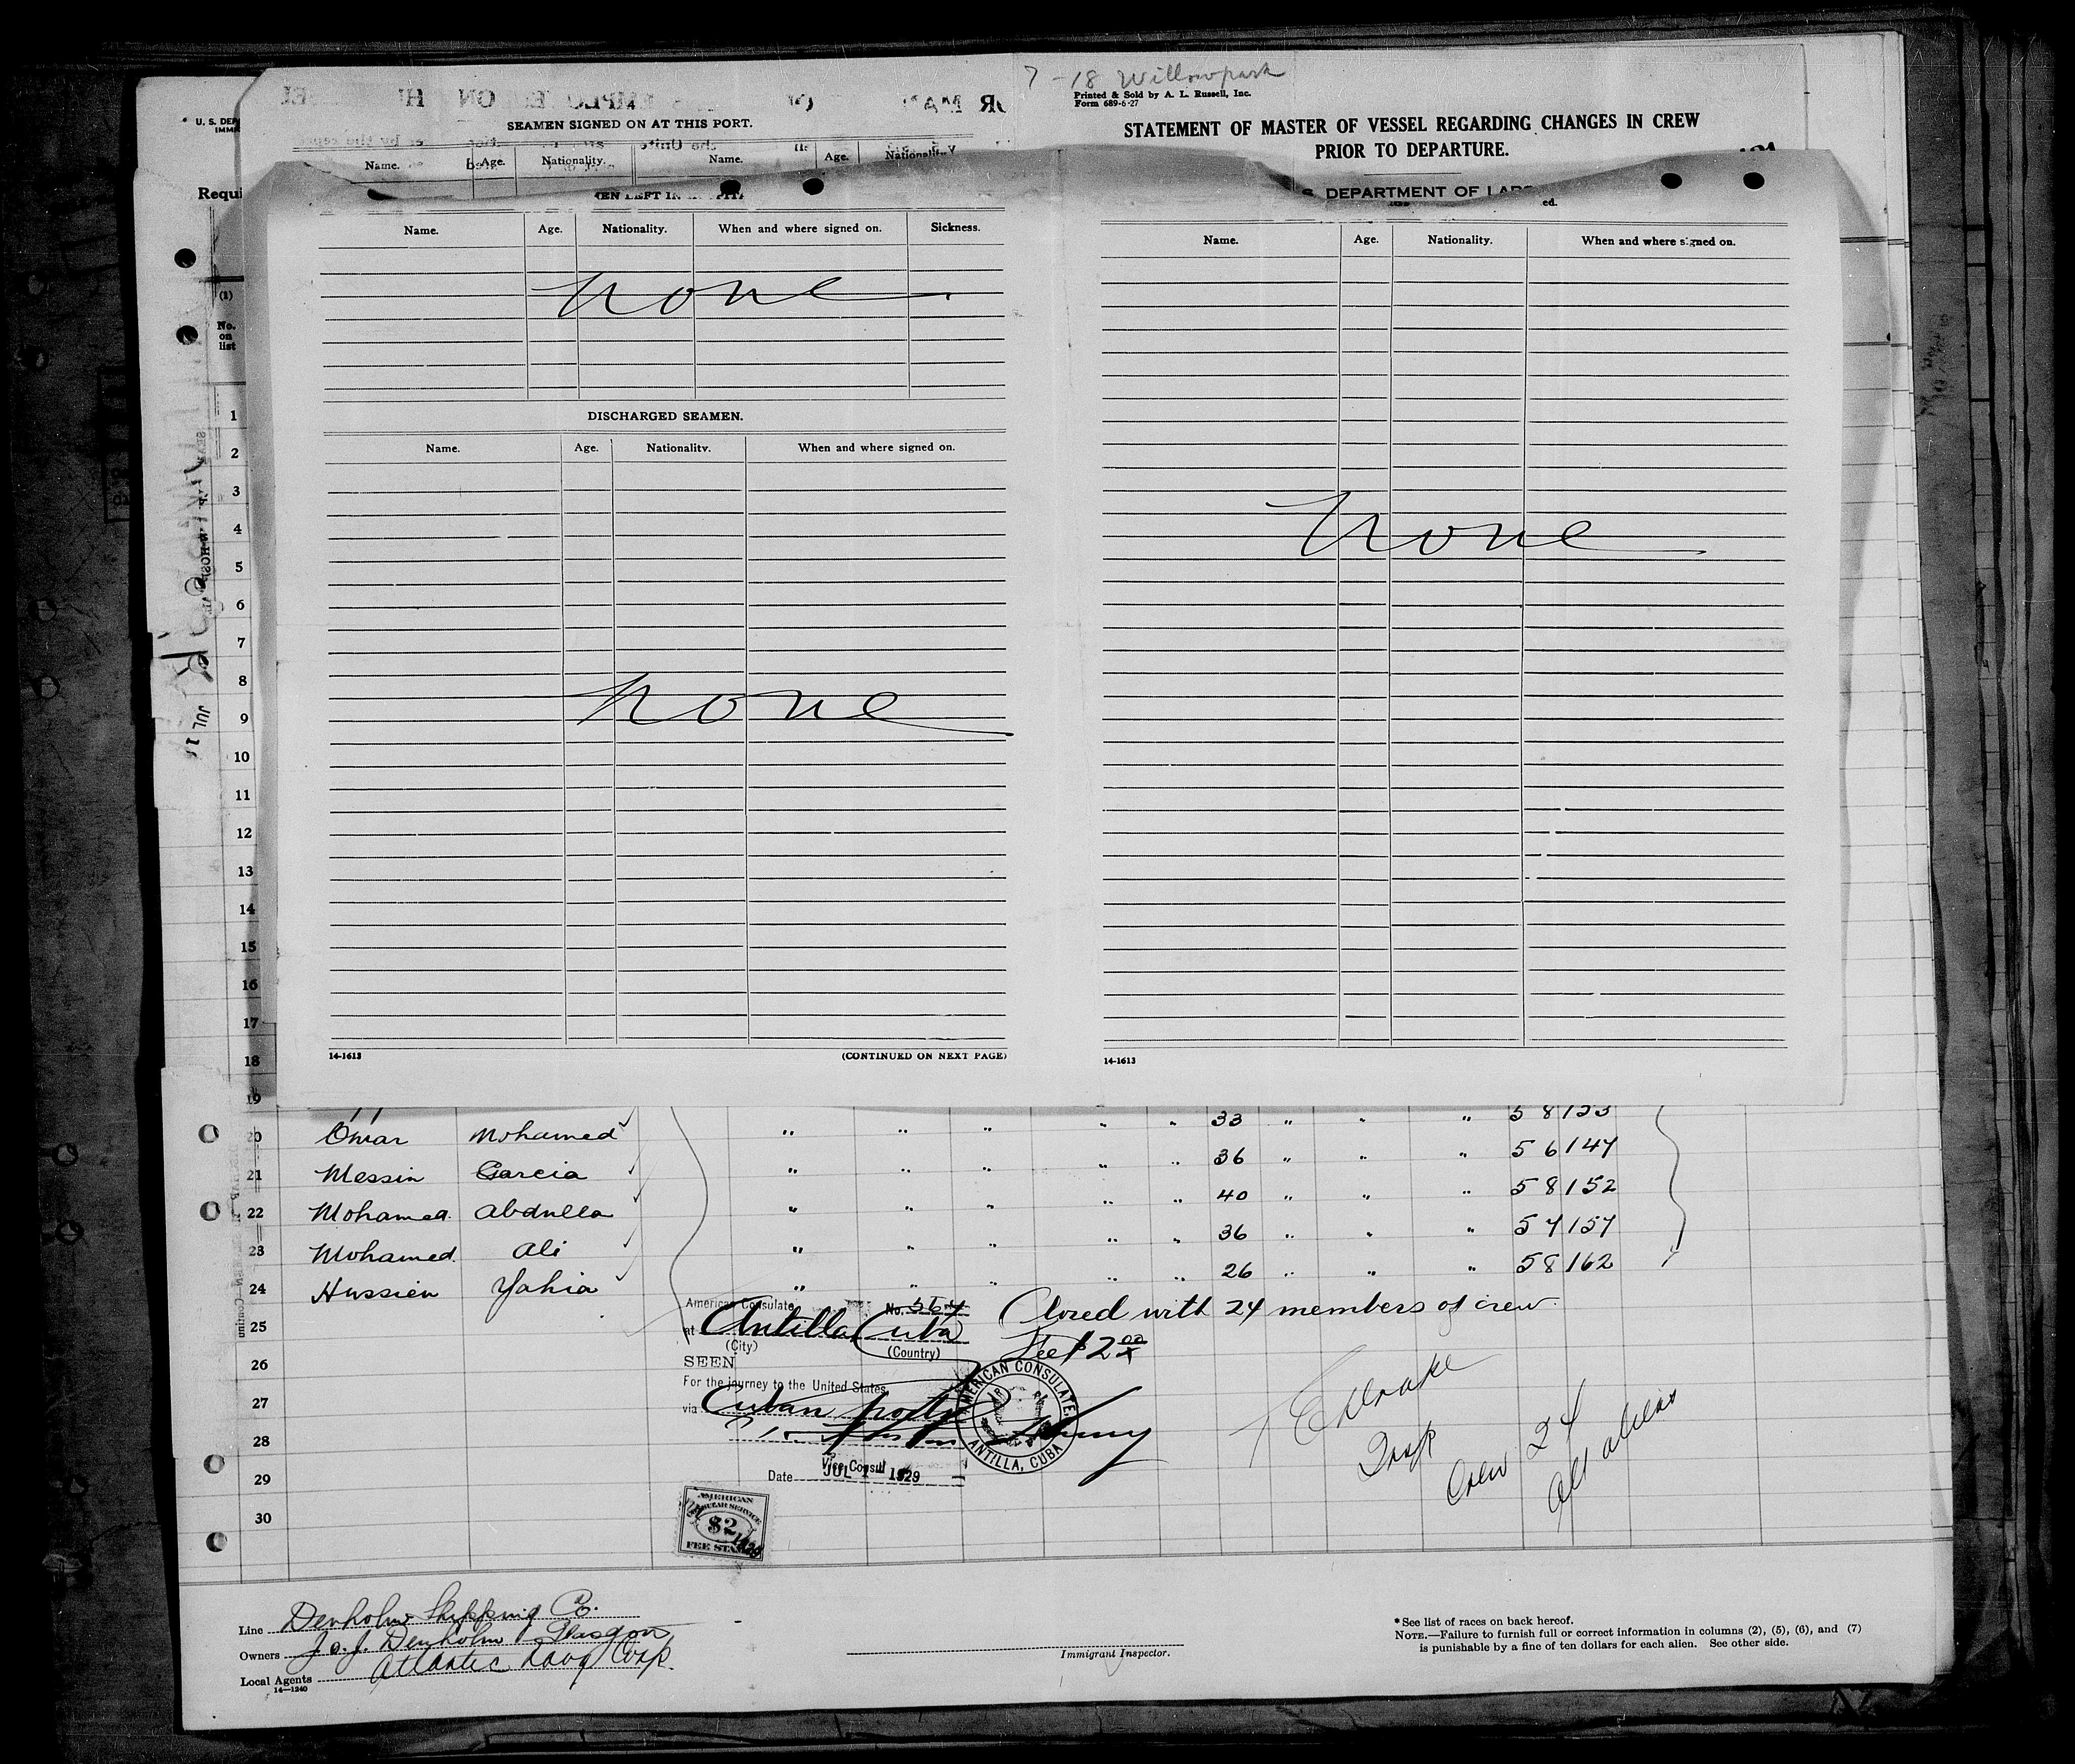 7-18 Willowpark
Printed & Sold by A. L. Russell, Inc.
Form 689-6-27
STATEMENT OF MASTER OF VESSEL REGARDING CHANGES IN CREW
PRIOR TO DEPARTURE.
SEAMEN SIGNED ON AT THIS PORT.
Name. Age. Nationality. Name. Age. Nationality.
U. S. DEP
Requi
(1)
No.
on
list
S. DEPARTMENT OF LABO
ed.
Name. Age. Nationality. When and where signed on. Sickness.
none
DISCHARGED SEAMEN.
Name. Age. Nationality. When and where signed on.
none
14-1613 (CONTINUED ON NEXT PAGE)
Name. Age. Nationality. When and where signed on.
none
14-1613
1
2
3
4
5
6
7
8
9
10
11
12
13
14
15
16
17
18
19
20 Omar Mohamed " " " " " 33 " " " 5 8 153
21 Messin Garcia " " " " " 36 " " " 5 6 147
22 Mohamed Abdulla " " " " " 40 " " " 5 8 152
23 Mohamed Ali " " " " " 36 " " " 5 7 157
24 Hussien Yahia " " " " " 26 " " " 5 8 162
25
26
27
28
29
30
American Consulate No. 564
at Antilla Cuba
(City) (Country)
SEEN
For the journey to the United States
via Cuban ports
Vice Consul
Date JUL 1 - 1929
AMERICAN CONSULATE
ANTILLA, CUBA
Closed with 24 members of crew.
Fee $2 00
AMERICAN
CONSULAR SERVICE
$2
FEE STAMP
Insp
Crew 24
All aliens
Line Denholm Shipping Co.
Owners J. & J. Denholm Glasgow
Local Agents Atlantic Navg Corp.
14—1240
Immigrant Inspector.
* See list of races on back hereof.
NOTE.—Failure to furnish full or correct information in columns (2), (5), (6), and (7)
is punishable by a fine of ten dollars for each alien. See other side.